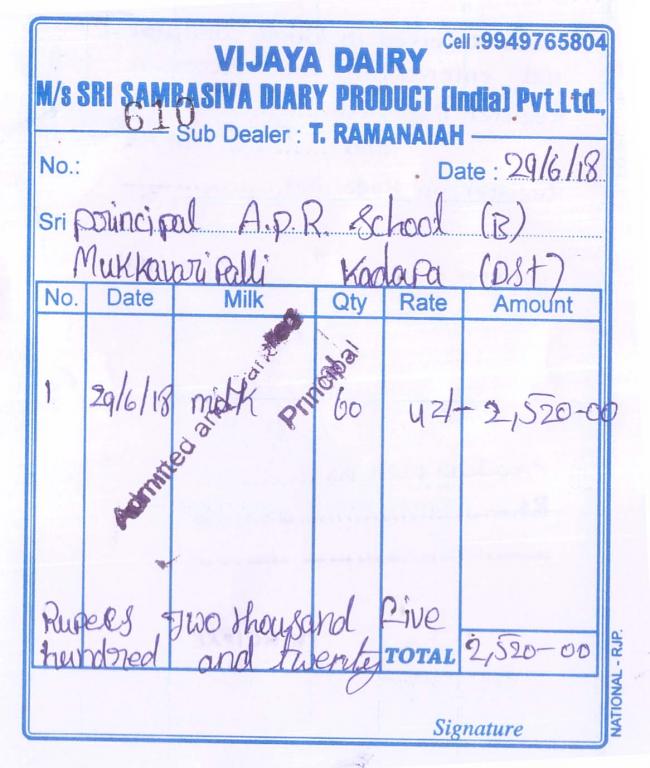 Cell :9949765804
VIJAYA DAIRY
M/s SRI SAMBASIVA DIARY PRODUCT (India) Pvt.Ltd.,
610
Sub Dealer : T. RAMANAIAH
No.: Date : 29/6/18
Sri principal A.P.R. School (B)
Mukkavaripalli Kadapa (DST)
No. Date Milk Qty Rate Amount
1 29/6/18 milk 60 42/- 2,520-00
Admitted and
Principal
Rupees Two thousand Five
hundred and twenty TOTAL 2,520-00
Signature
NATIONAL - RJP.